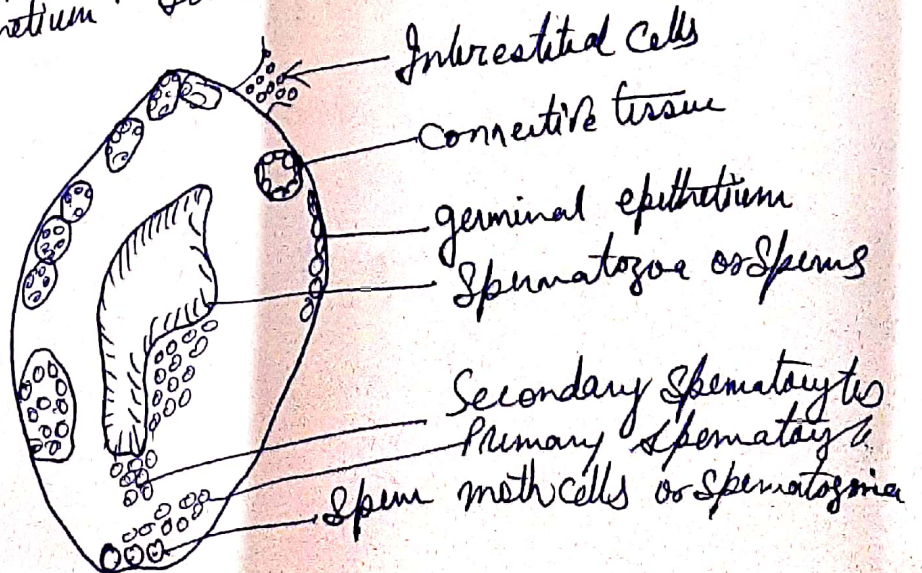 Interestitial cells
Connective tissue
germinal epithetium
Spermatozoa or Sperms
Secondary Spematocytes
Primary Spematocyte
Sperm moth cells or Spematogonia